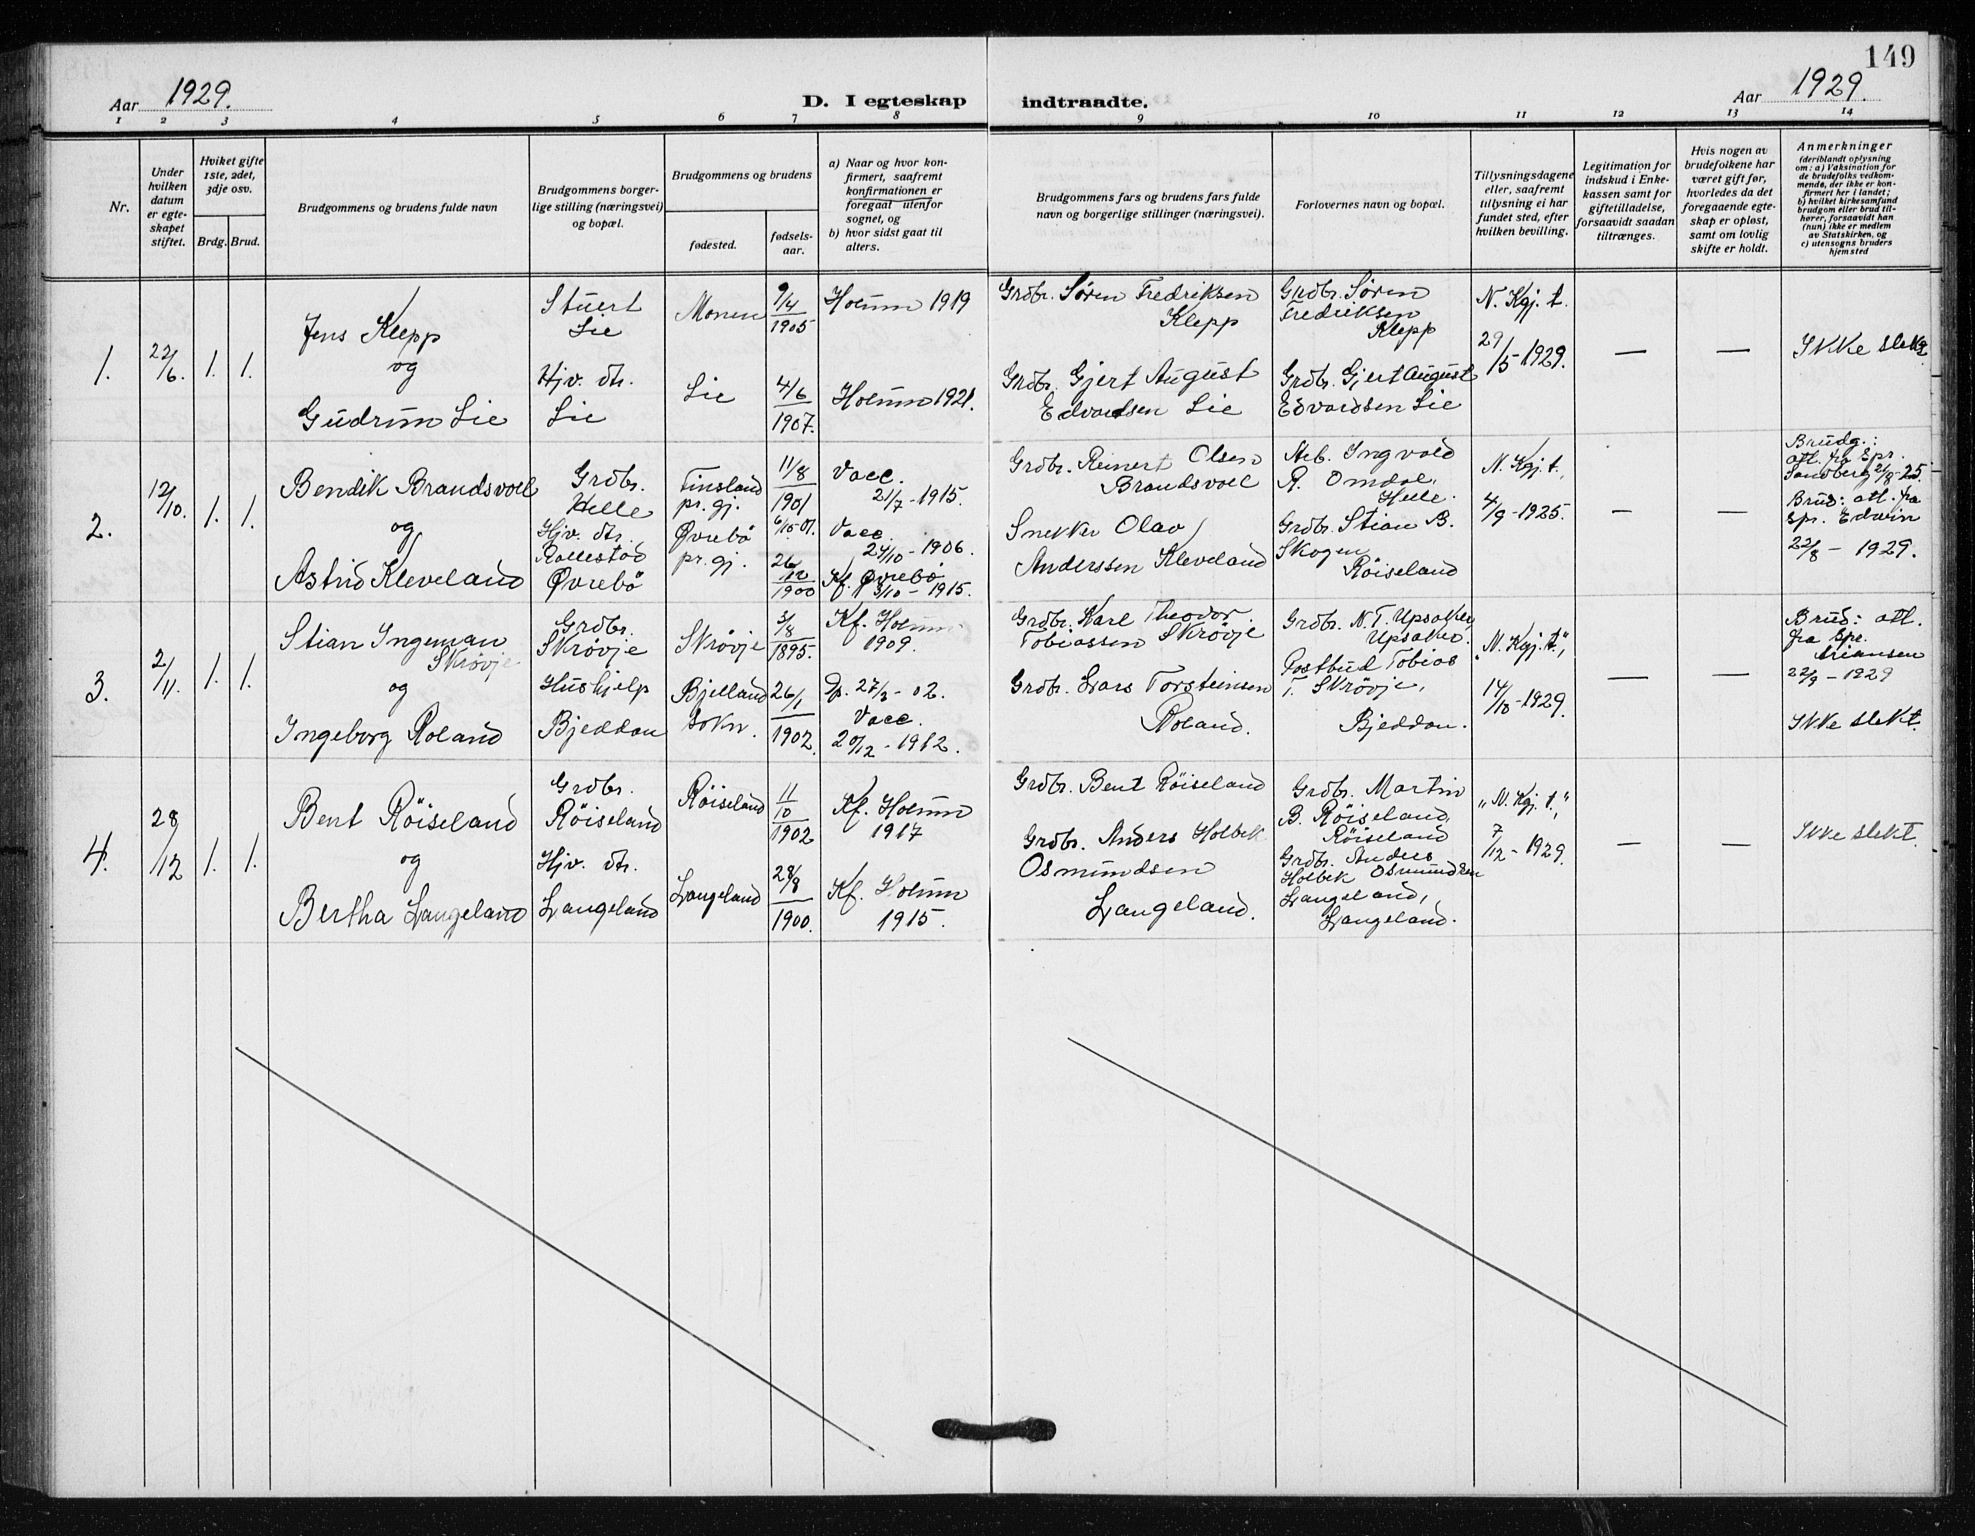 149
Aar 1929.
D. I egteskap indtraadte.
Aar 1929.
1 2 3 4 5 6 7 8 9 10 11 12 13 14
Nr.
Under hvilken datum er egte-skapet stiftet.
Hviket gifte 1ste, 2det, 3dje osv.
Brdg. Brud.
Brudgommens og brudens fulde navn
Brudgommens borger-lige stilling (næringsvei) og bopæl.
Brudgommens og brudens
fødested.
fødsels-aar.
a) Naar og hvor kon-firmert, saafremt konfirmationen er foregaat utenfor sognet, og
b) hvor sidst gaat til alters.
Brudgommens fars og brudens fars fulde navn og borgerlige stillinger (næringsvei).
Forlovernes navn og bopæl.
Tillysningsdagene eller, saafremt tillysning ei har fundet sted, efter hvilken bevilling.
Legitimation for indskud i Enke-kassen samt for giftetilladelse, forsaavidt saadan tiltrænges.
Hvis nogen av brudefolkene har været gift før, hvorledes da det foregaaende egte-skap er opløst, samt om lovlig skifte er holdt.
Anmerkninger
(deriblandt oplysning om: a) Vaksination for de brudefolks vedkom-mende, der ikke er kon-firmert her i landet;
b) hvilket kirkesamfund brudgom eller brud til-hører, forsaavidt han (hun) ikke er medlem av Statskirken, og
c) utensogns bruders hjemsted
1.
22/6.
1. 1.
Jens Klepp
og
Gudrun Lie
Stuert
Lie
Hjv. dtr.
Lie
Monen
Lie
9/4
1905
4/6
1907.
Holum 1919
Holum 1921.
Grdbr. Søren Fredriksen
Klepp
Grdbr. Gjert August
Edvardsen Lie
Grdbr. Søren
Fredriksen
Klepp
Grdbr. Gjert August
Edvardsen Lie
N. Kgj. t.
29/5-1929.
—
—
Ikke slekt
2.
12/10.
1. 1.
Bendik Brandsvoll
og
Astrid Kleveland
Grdbr.
Helle
Hjv. dtr.
Rollestad
Øvrebø
Finsland
pr. gj.
Øvrebø
pr. gj.
11/8
1901
6/10-01.
26
12
1900
Vacc.
21/7-1915.
Vacc.
24/10-1906.
Kf. Øvrebø
3/10-1915.
Grdbr. Reinert Olsen
Brandsvoll
Snekker Olav
Anderssen Kleveland
Arb. Ingvald
R. Omdal,
Helle.
Grdbr. Stian B.
Skogen
Røiseland
N. Kgj. t.
4/9-1925.
—
—
Brudg.:
att. fra Spr.
Sandberg 21/8-25
Brud: att. fra
spr. Edwin
22/8-1929.
3.
2/11.
1. 1.
Stian Ingeman
Skrøvje
og
Ingeborg Roland
Grdbr.
Skrøvje
Hushjelp
Bjeddan
Skrøvje
Bjelland
sokn.
3/8
1895.
26/1
1902.
Kf. Holum
1909.
Dp. 27/3-02.
Vacc.
20/12-1912.
Grdbr. Karl Theodor
Tobiassen Skrøvje
Grdbr. Lars Torsteinsen
Roland.
Grdbr. N. T. Upsaker,
Upsaker.
Postbud Tobias
T. Skrøvje,
Bjeddan.
„N. Kgj. t.“,
14/10-1929.
—
—
Brud: att.
fra Spr.
22/9-1929
Ikke slekt.
4.
28/12
1. 1.
Bent Røiseland
og
Bertha Langeland
Grdbr.
Røiseland
Hjv. dtr.
Langeland
Røiseland
Langeland
11
10
1902
28/8
1900.
Kf. Holum
1917
Kf. Holum
1915.
Grdbr. Bent Røiseland
Grdbr. Anders Holbek
Osmundsen
Langeland.
Grdbr. Martin
B. Røiseland,
Røiseland
Grdbr. Anders
Holbek Osmundsen
Langeland,
Langeland.
„N. Kgj. t.“,
7/12-1929.
—
—
Ikke slekt.